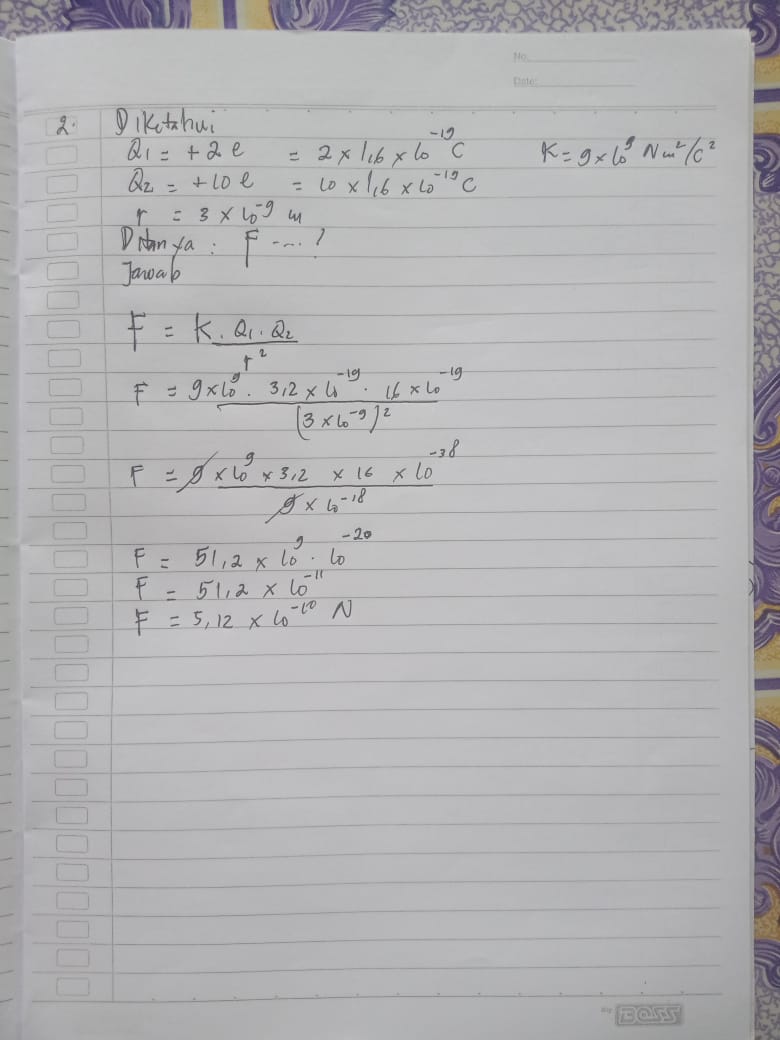 No.
Date:
2. Diketahui
Q1 = +2e = 2 × 1,6 × 10^-19 C K = 9 × 10^9 Nm²/C²
Q2 = +10e = 10 × 1,6 × 10^-19 C
r = 3 × 10^-9 m
Ditanya : F ....?
Jawab
F = K . Q1 . Q2
r²
F = 9×10^9 . 3,2 × 10^-19 . 16 × 10^-19
(3 × 10^-9)²
F = 9 × 10^9 × 3,2 × 16 × 10^-38
9 × 10^-18
F = 51,2 × 10^9 . 10^-20
F = 51,2 × 10^-11
F = 5,12 × 10^-10 N
By BOSS